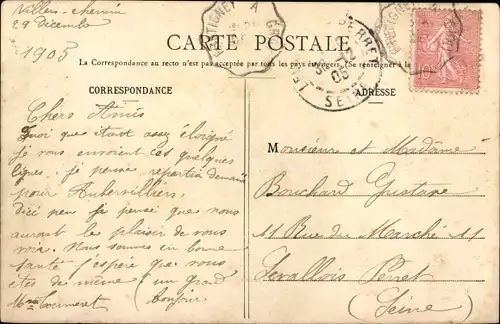 Villers-chemin
29 Décembre
1905
CARTE POSTALE
La Correspondance au recto n'est pas acceptée par tous les pays étrangers. (Se renseigner à la
CORRESPONDANCE
ADRESSE
Chers Amis
Quoi que étant assez éloigné
je vous envoient ces quelques
lignes. je pense repartir demain
pour Aubervilliers.
Dici peu je pense que nous
auront le plaisir de vous
voir. Nous sommes en bonne
santé j'espère que vous
êtes de même (un grand
bonjour)
Monsieur et Madame
Bouchard Gustave
11 Rue du Marché 11
Levallois Perret
(Seine)
PERRET
SEINE